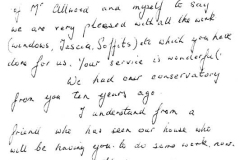 of Mr Allwood and myself to say
we are very pleased with all the work
(windows, Fascia, Soffits) etc which you have
done for us. Your service is wonderful.
We had our conservatory
from you ten years ago.
I understand from a
friend who has seen our house who
will be having you to do some work now.